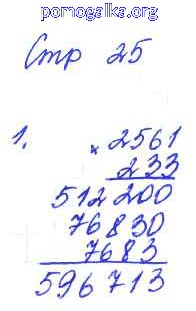 pomogalka.org
Стр 25
1. × 2561
233
512 200
76 830
7683
596 713